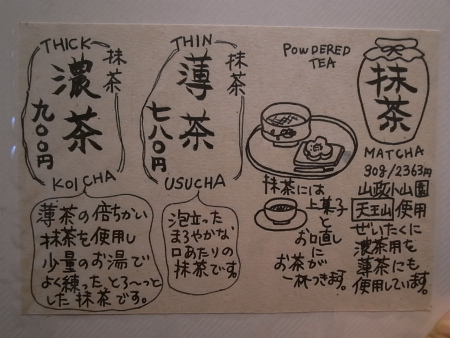 THICK
抹茶
濃茶
九〇〇円
KOICHA
薄茶の倍ちかい
抹茶を使用し
少量のお湯で
よく練った、とろ〜っと
した抹茶です。
THIN
抹茶
薄茶
七八〇円
USUCHA
泡立った
まろやかな
口あたりの
抹茶です。
POWDERED
TEA
抹茶には
上菓子
と
お口直し
に
お茶が
一杯つきます。
抹茶
MATCHA
90g/2363円
山政小山園
天王山使用
ぜいたくに
濃茶用を
薄茶にも
使用しています。